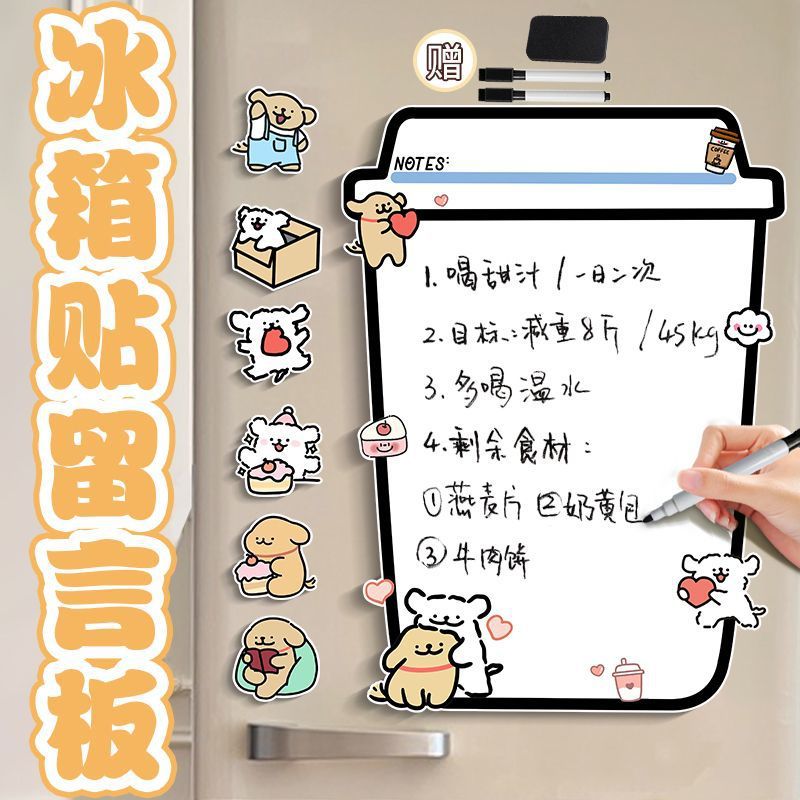 冰箱贴留言板
赠
NOTES:
COFFEE
1.喝甜汁/一日二次
2.目标:减重8斤/45kg
3.多喝温水
4.剩余食材:
①燕麦片 ②奶黄包
③牛肉饼